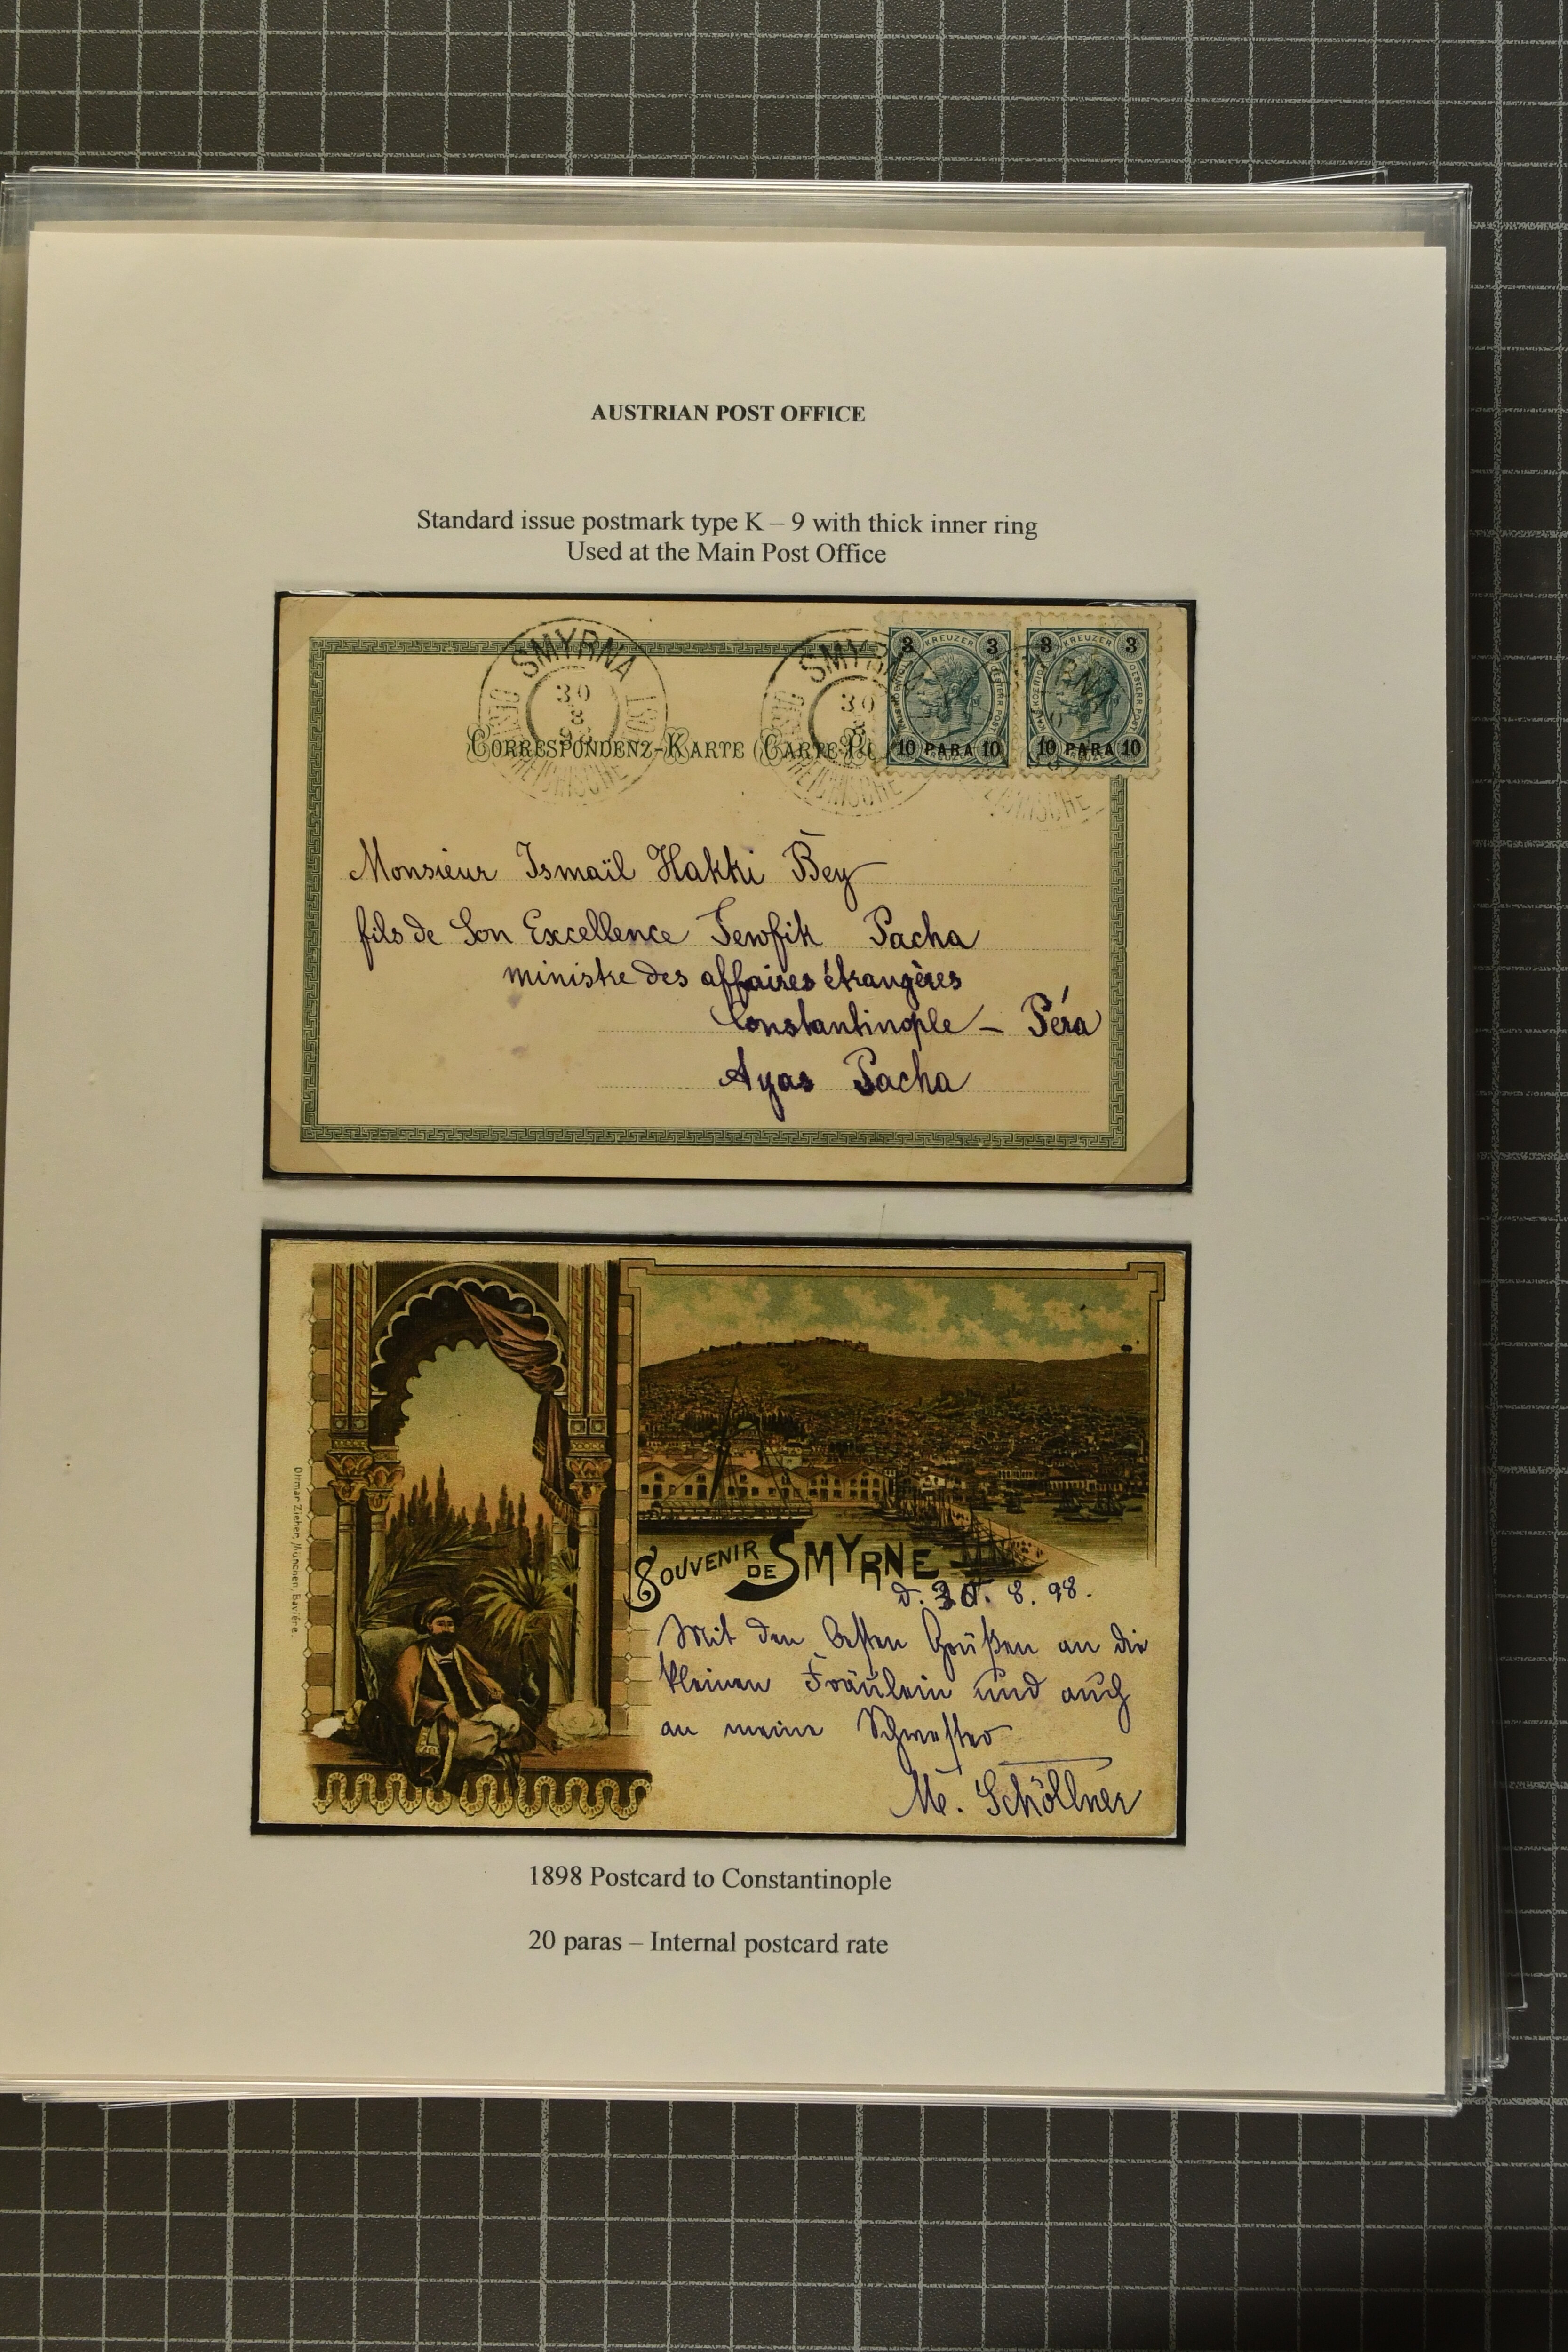 AUSTRIAN POST OFFICE
Standard issue postmark type K – 9 with thick inner ring
Used at the Main Post Office
SMYRNA
30
8
98
SMYRNA
30
8
CORRESPONDENZ-KARTE (CARTE
3 KREUZER 3
10 PARA 10
3 KREUZER 3
10 PARA 10
Monsieur Ismaïl Hakki Bey
fils de Son Excellence Tewfik Pacha
ministre des affaires étrangères
Constantinople – Péra
Ayas Pacha
SOUVENIR DE SMYRNE
d. 30. 8. 98.
Mit den besten Grüßen an die
kleinen Fräulein und auch
an meine Schwester
M. Schöllner
Ottmar Zieher, München, Bavière.
1898 Postcard to Constantinople
20 paras – Internal postcard rate